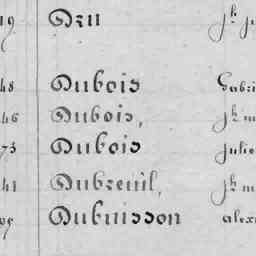 19 Dru jh ju
48 Dubois Gabri
46 Dubois, jh m
73 Dubois julie
41 Dubreuil, jh m
Dubuisson alex